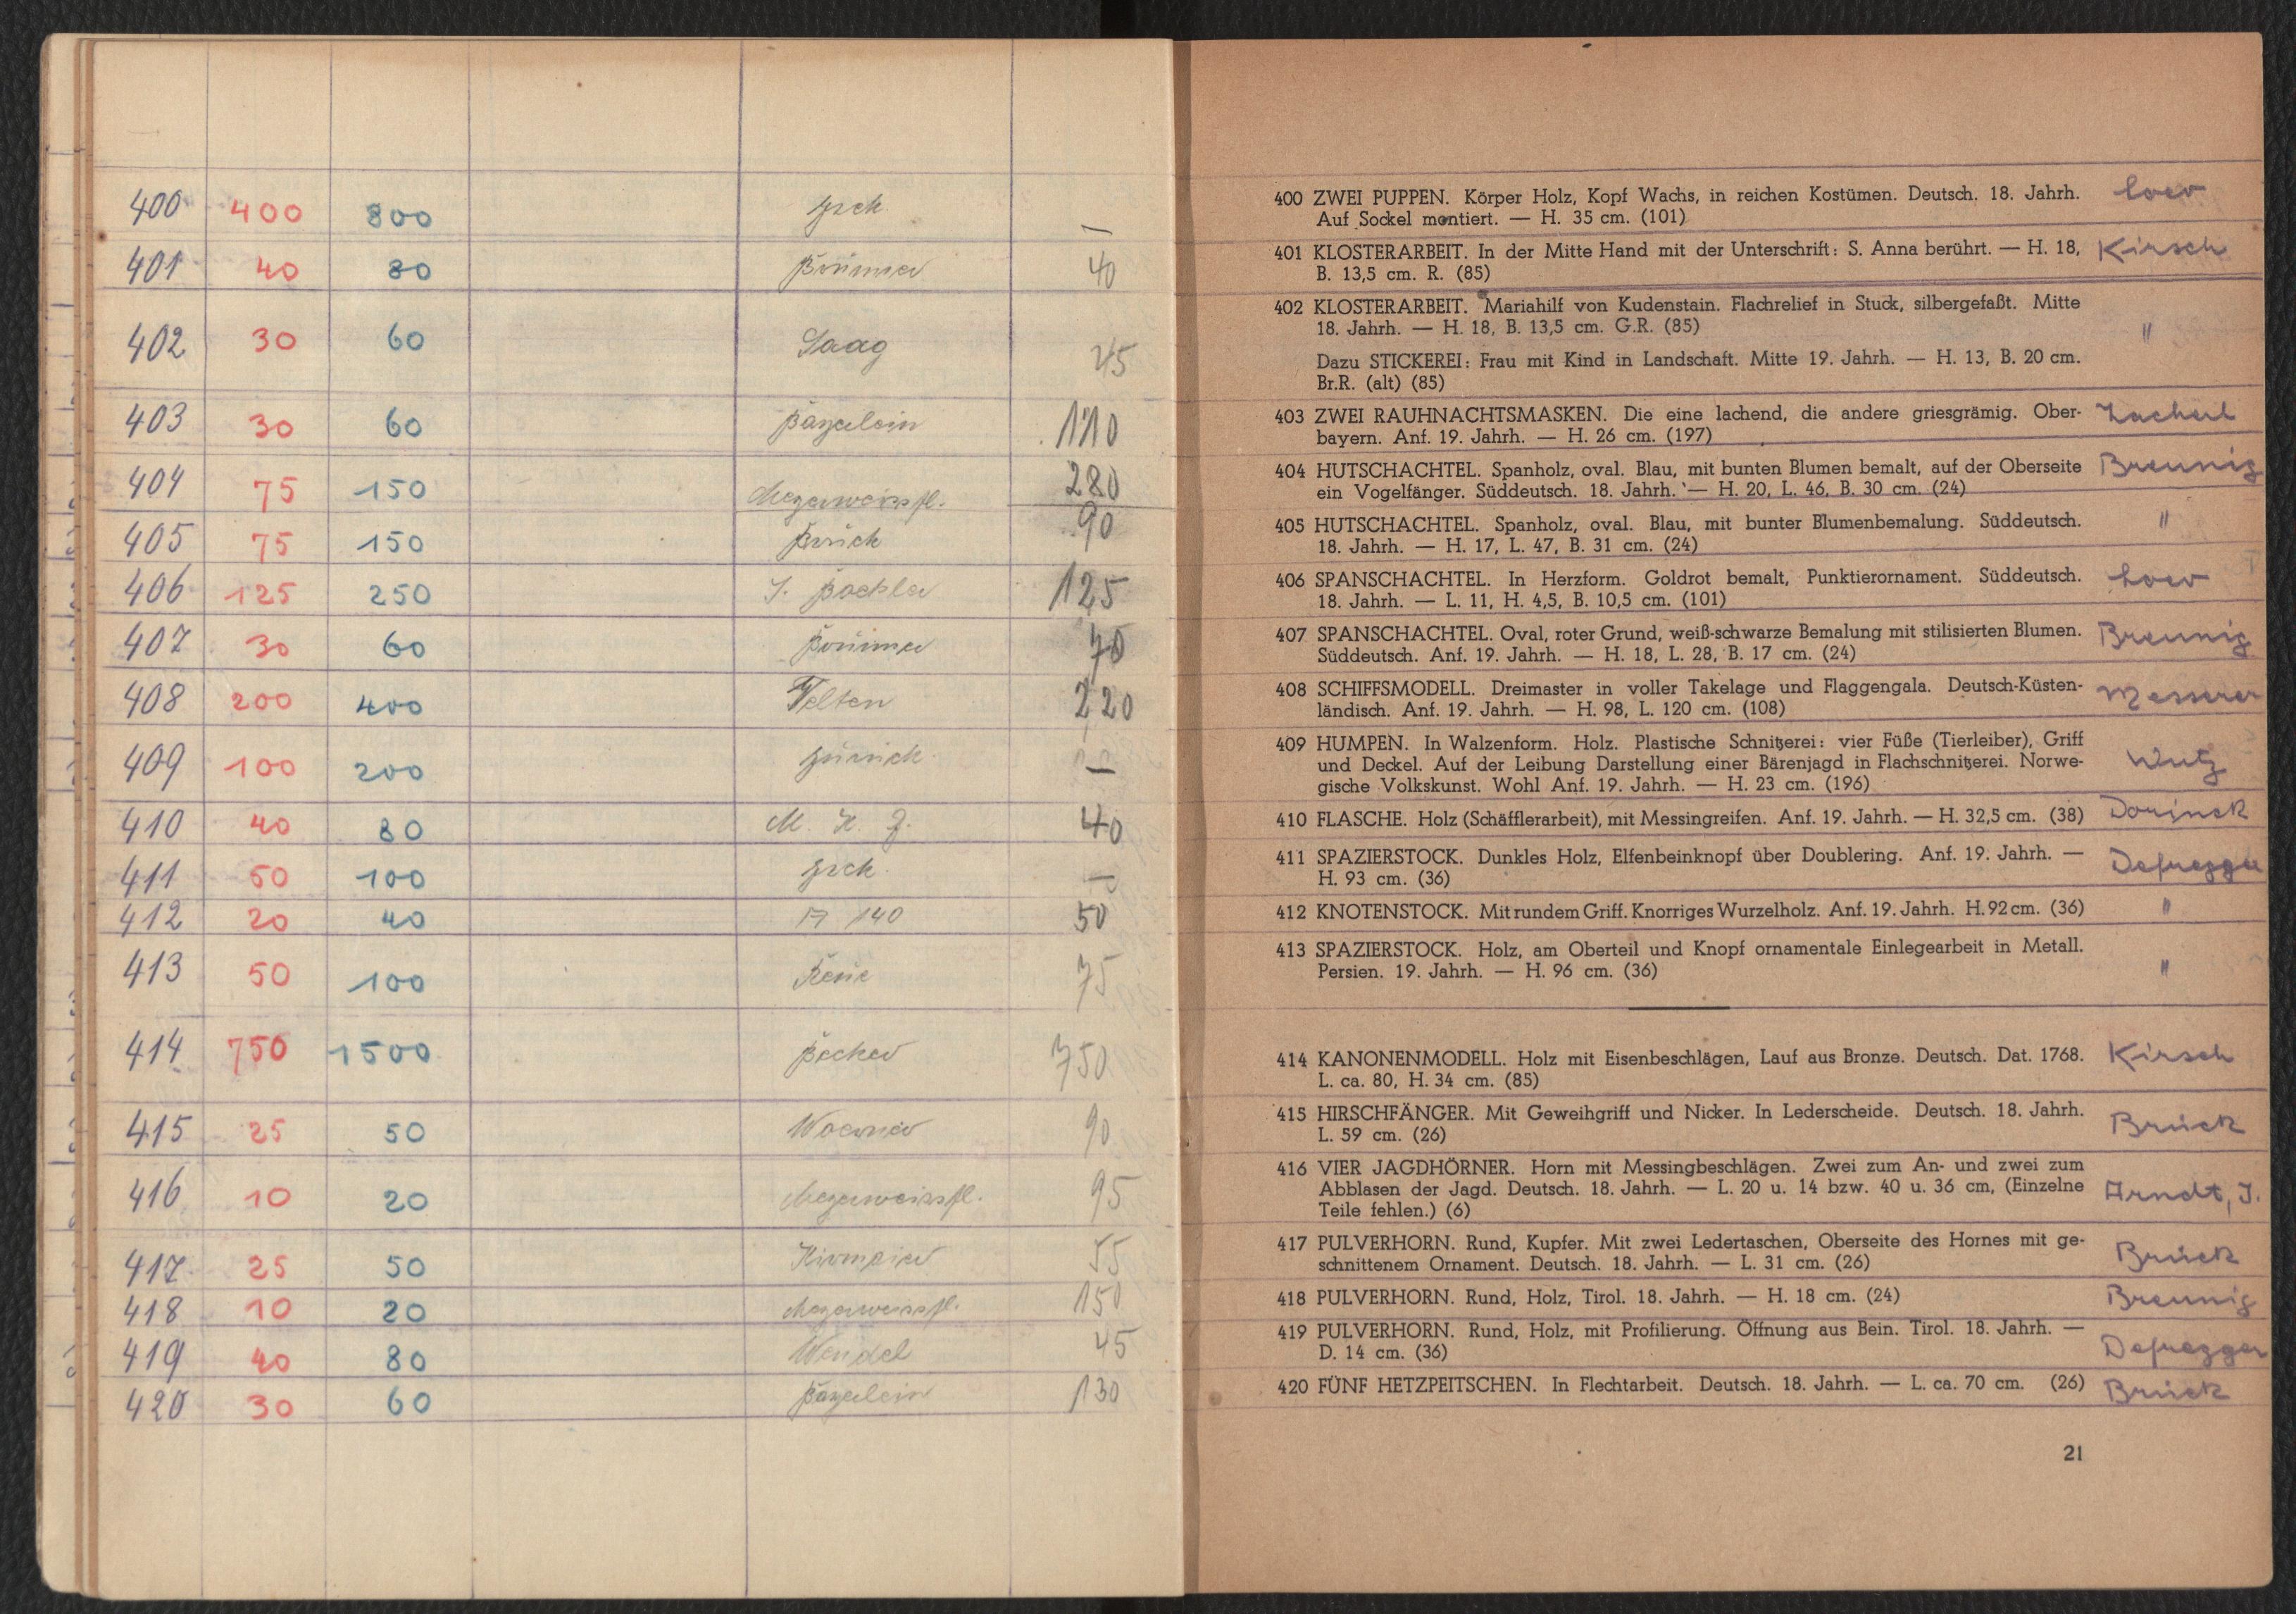 400 400 800 zrck. —
401 40 80 40
402 30 60 Saag 45
403 30 60 110
404 75 150 280
405 75 150 90
406 125 250 125
407 30 60 70
408 200 400 Velten 220
409 100 200 zurück —
410 40 80 40
411 50 100 zrck. —
412 20 40 140 50
413 50 100 75
414 750 1500 750
415 25 50 90
416 10 20 95
417 25 50 55
418 10 20 150
419 40 80 Wendel 45
420 30 60 130
400 ZWEI PUPPEN. Körper Holz, Kopf Wachs, in reichen Kostümen. Deutsch. 18. Jahrh. Loev
Auf Sockel montiert. — H. 35 cm. (101)
401 KLOSTERARBEIT. In der Mitte Hand mit der Unterschrift: S. Anna berührt. — H. 18, Kirsch
B. 13,5 cm. R. (85)
402 KLOSTERARBEIT. Mariahilf von Kudenstain. Flachrelief in Stuck, silbergefaßt. Mitte
18. Jahrh. — H. 18, B. 13,5 cm. G.R. (85) "
Dazu STICKEREI: Frau mit Kind in Landschaft. Mitte 19. Jahrh. — H. 13, B. 20 cm.
Br.R. (alt) (85)
403 ZWEI RAUHNACHTSMASKEN. Die eine lachend, die andere griesgrämig. Ober- Zacherl
bayern. Anf. 19. Jahrh. — H. 26 cm. (197)
404 HUTSCHACHTEL. Spanholz, oval. Blau, mit bunten Blumen bemalt, auf der Oberseite Breunig
ein Vogelfänger. Süddeutsch. 18. Jahrh. — H. 20, L. 46, B. 30 cm. (24)
405 HUTSCHACHTEL. Spanholz, oval. Blau, mit bunter Blumenbemalung. Süddeutsch. "
18. Jahrh. — H. 17, L. 47, B. 31 cm. (24)
406 SPANSCHACHTEL. In Herzform. Goldrot bemalt, Punktierornament. Süddeutsch. Loev
18. Jahrh. — L. 11, H. 4,5, B. 10,5 cm. (101)
407 SPANSCHACHTEL. Oval, roter Grund, weiß-schwarze Bemalung mit stilisierten Blumen. Breunig
Süddeutsch. Anf. 19. Jahrh. — H. 18, L. 28, B. 17 cm. (24)
408 SCHIFFSMODELL. Dreimaster in voller Takelage und Flaggengala. Deutsch-Küsten- Messerer
ländisch. Anf. 19. Jahrh. — H. 98, L. 120 cm. (108)
409 HUMPEN. In Walzenform. Holz. Plastische Schnitzerei: vier Füße (Tierleiber), Griff
und Deckel. Auf der Leibung Darstellung einer Bärenjagd in Flachschnitzerei. Norwe- Wutz
gische Volkskunst. Wohl Anf. 19. Jahrh. — H. 23 cm. (196)
410 FLASCHE. Holz (Schäfflerarbeit), mit Messingreifen. Anf. 19. Jahrh. — H. 32,5 cm. (38)
411 SPAZIERSTOCK. Dunkles Holz, Elfenbeinknopf über Doublering. Anf. 19. Jahrh. — Defregger
H. 93 cm. (36)
412 KNOTENSTOCK. Mit rundem Griff. Knorriges Wurzelholz. Anf. 19. Jahrh. H. 92 cm. (36) "
413 SPAZIERSTOCK. Holz, am Oberteil und Knopf ornamentale Einlegearbeit in Metall.
Persien. 19. Jahrh. — H. 96 cm. (36) "
414 KANONENMODELL. Holz mit Eisenbeschlägen, Lauf aus Bronze. Deutsch. Dat. 1768. Kirsch
L. ca. 80, H. 34 cm. (85)
415 HIRSCHFÄNGER. Mit Geweihgriff und Nicker. In Lederscheide. Deutsch. 18. Jahrh. Brück
L. 59 cm. (26)
416 VIER JAGDHÖRNER. Horn mit Messingbeschlägen. Zwei zum An- und zwei zum
Abblasen der Jagd. Deutsch. 18. Jahrh. — L. 20 u. 14 bzw. 40 u. 36 cm, (Einzelne Arndt, J.
Teile fehlen.) (6)
417 PULVERHORN. Rund, Kupfer. Mit zwei Ledertaschen, Oberseite des Hornes mit ge- Brück
schnittenem Ornament. Deutsch. 18. Jahrh. — L. 31 cm. (26)
418 PULVERHORN. Rund, Holz, Tirol. 18. Jahrh. — H. 18 cm. (24) Breunig
419 PULVERHORN. Rund, Holz, mit Profilierung. Öffnung aus Bein. Tirol. 18. Jahrh. — Defregger
D. 14 cm. (36)
420 FÜNF HETZPEITSCHEN. In Flechtarbeit. Deutsch. 18. Jahrh. — L. ca. 70 cm. (26) Brück
21